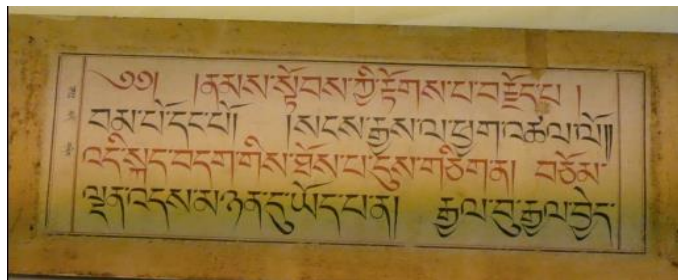 ༄༅། །ནམས་སྟོབས་ཀྱི་རྟོགས་པ་བརྗོད་པ །
བམ་པོ་དང་པོ། །སངས་རྒྱས་ལ་ཕྱག་འཚལ་ལོ༎
འདི་སྐད་བདག་གིས་ཐོས་པ་དུས་གཅིག་ན། བཅོམ་
ལྡན་འདས་མ་ཉན་དུ་ཡོད་པ་ན། རྒྱལ་བུ་རྒྱལ་བྱེད་